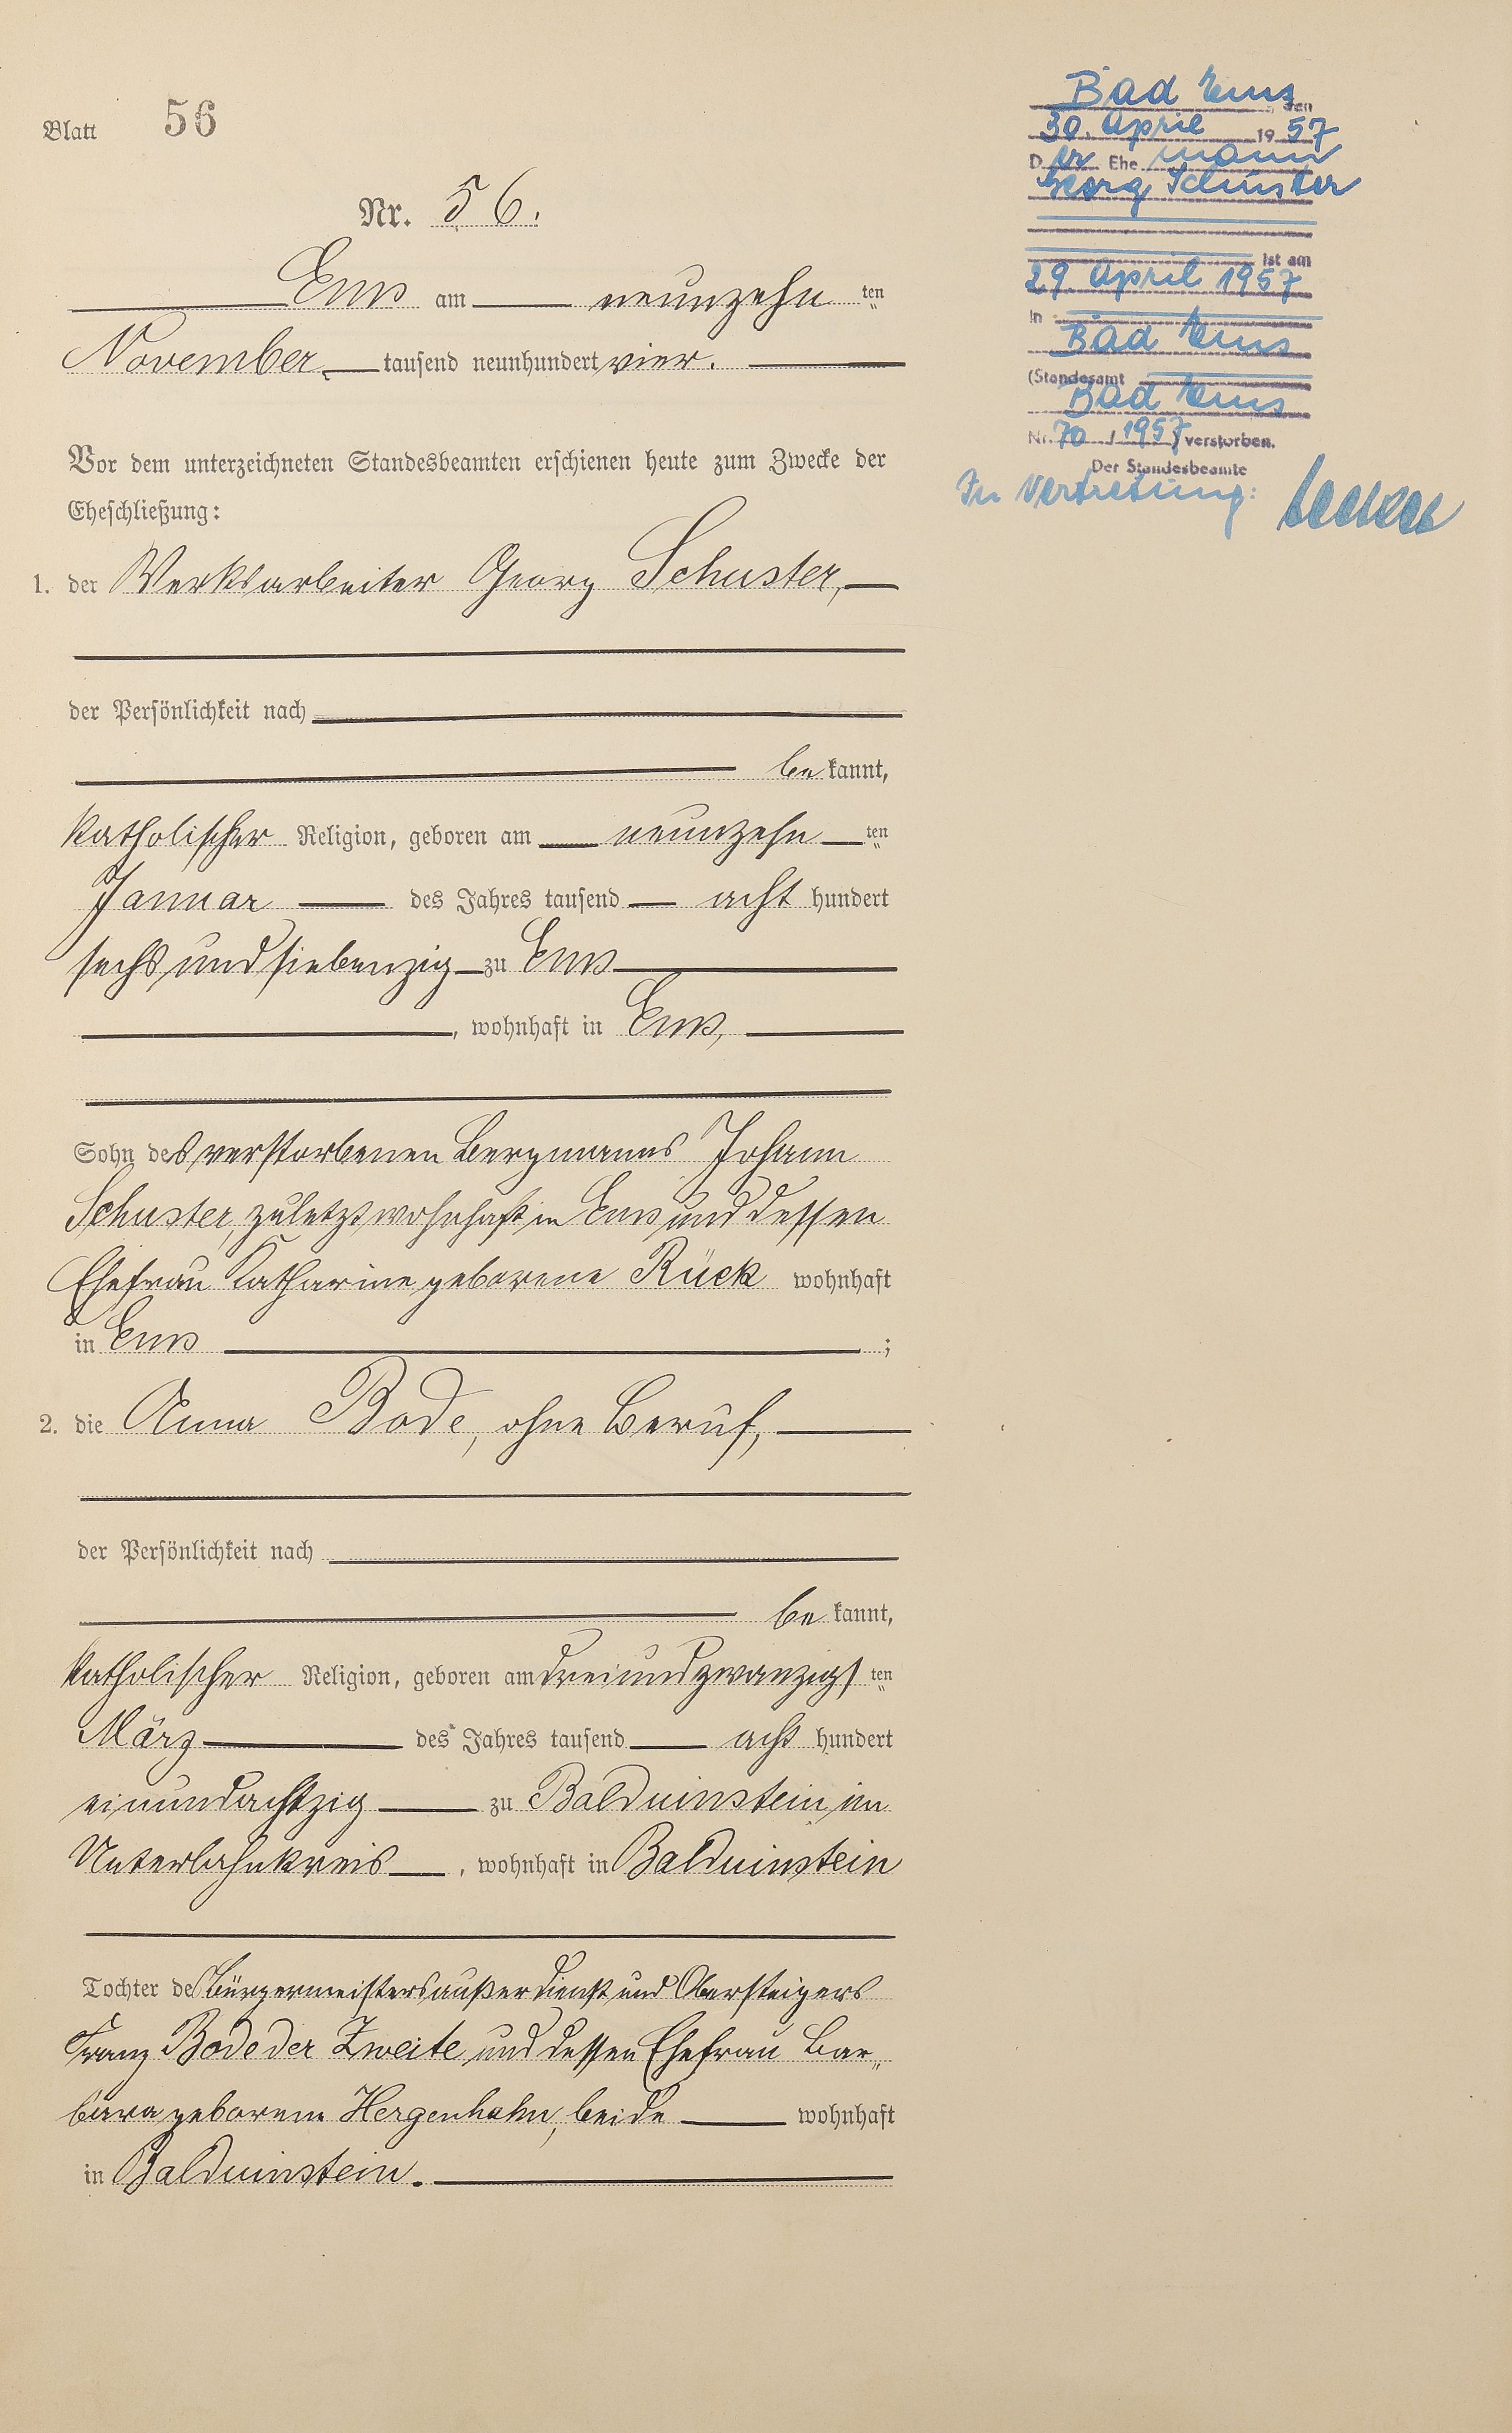 Blatt 56
Nr. 56.
Ems am neunzehn ten
November tausend neunhundert vier.
Vor dem unterzeichneten Standesbeamten erschienen heute zum Zwecke der
Eheschließung:
1. der Werksarbeiter Georg Schuster,
der Persönlichkeit nach
be kannt,
katholischer Religion, geboren am neunzehn ten
Januar des Jahres tausend acht hundert
sechs und siebenzig zu Ems
, wohnhaft in Ems,
Sohn des verstorbenen Bergmanns Johann
Schuster, zuletzt wohnhaft in Ems und dessen
Ehefrau Katharine geborene Rück wohnhaft
in Ems ;
2. die Anna Bode, ohne Beruf,
der Persönlichkeit nach
be kannt,
katholischer Religion, geboren am dreiundzwanzigs ten
März des Jahres tausend acht hundert
einundachtzig zu Balduinstein im
Unterlahnkreis , wohnhaft in Balduinstein
Tochter des Bürgermeisters außer Dienst und Obersteigers
Franz Bode der Zweite und dessen Ehefrau Bar„
bara geborene Hergenhahn, beide wohnhaft
in Balduinstein.
Bad Ems, den
30. April 1957
Der Ehemann
Georg Schuster
ist am
29. April 1957
in
Bad Ems
(Standesamt
Bad Ems
Nr. 70 / 1957) verstorben.
Der Standesbeamte
In Vertretung: